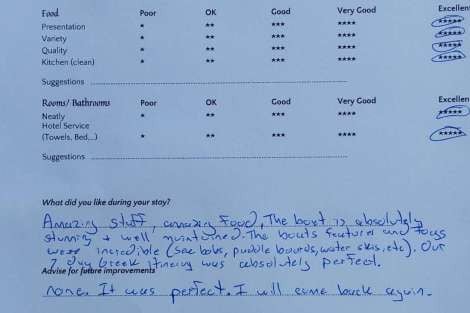 Food Poor OK Good Very Good Excellen
Presentation * ** *** **** *****
Variety * ** *** **** *****
Quality * ** *** **** *****
Kitchen (clean) * ** *** **** *****
Suggestions
Rooms/ Bathrooms Poor OK Good Very Good Excellen
Neatly * ** *** **** *****
Hotel Service
(Towels, Bed...) * ** *** **** *****
Suggestions
What did you like during your stay?
Amazing staff, amazing food, The boat is absolutely
stunning + well maintained. The boats features and toys
were incredible (sea bobs, puddle boards, water skis, etc). Our
7 day Greek itinerary was absolutely perfect.
Advise for future improvements
none. It was perfect. I will come back again.